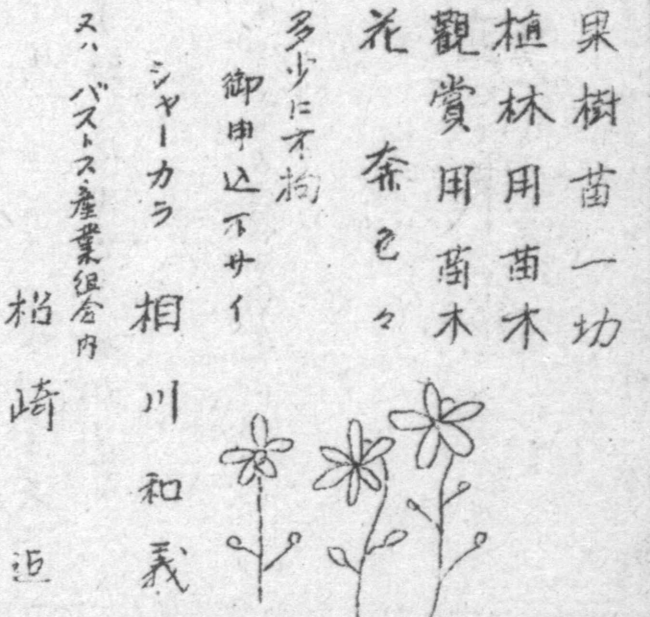 果樹苗一切
植林用苗木
觀賞用苗木
花卉色々
多少に不拘
御申込下サイ
シャーカラ 相川和義
又ハ バストス産業組合内
崎